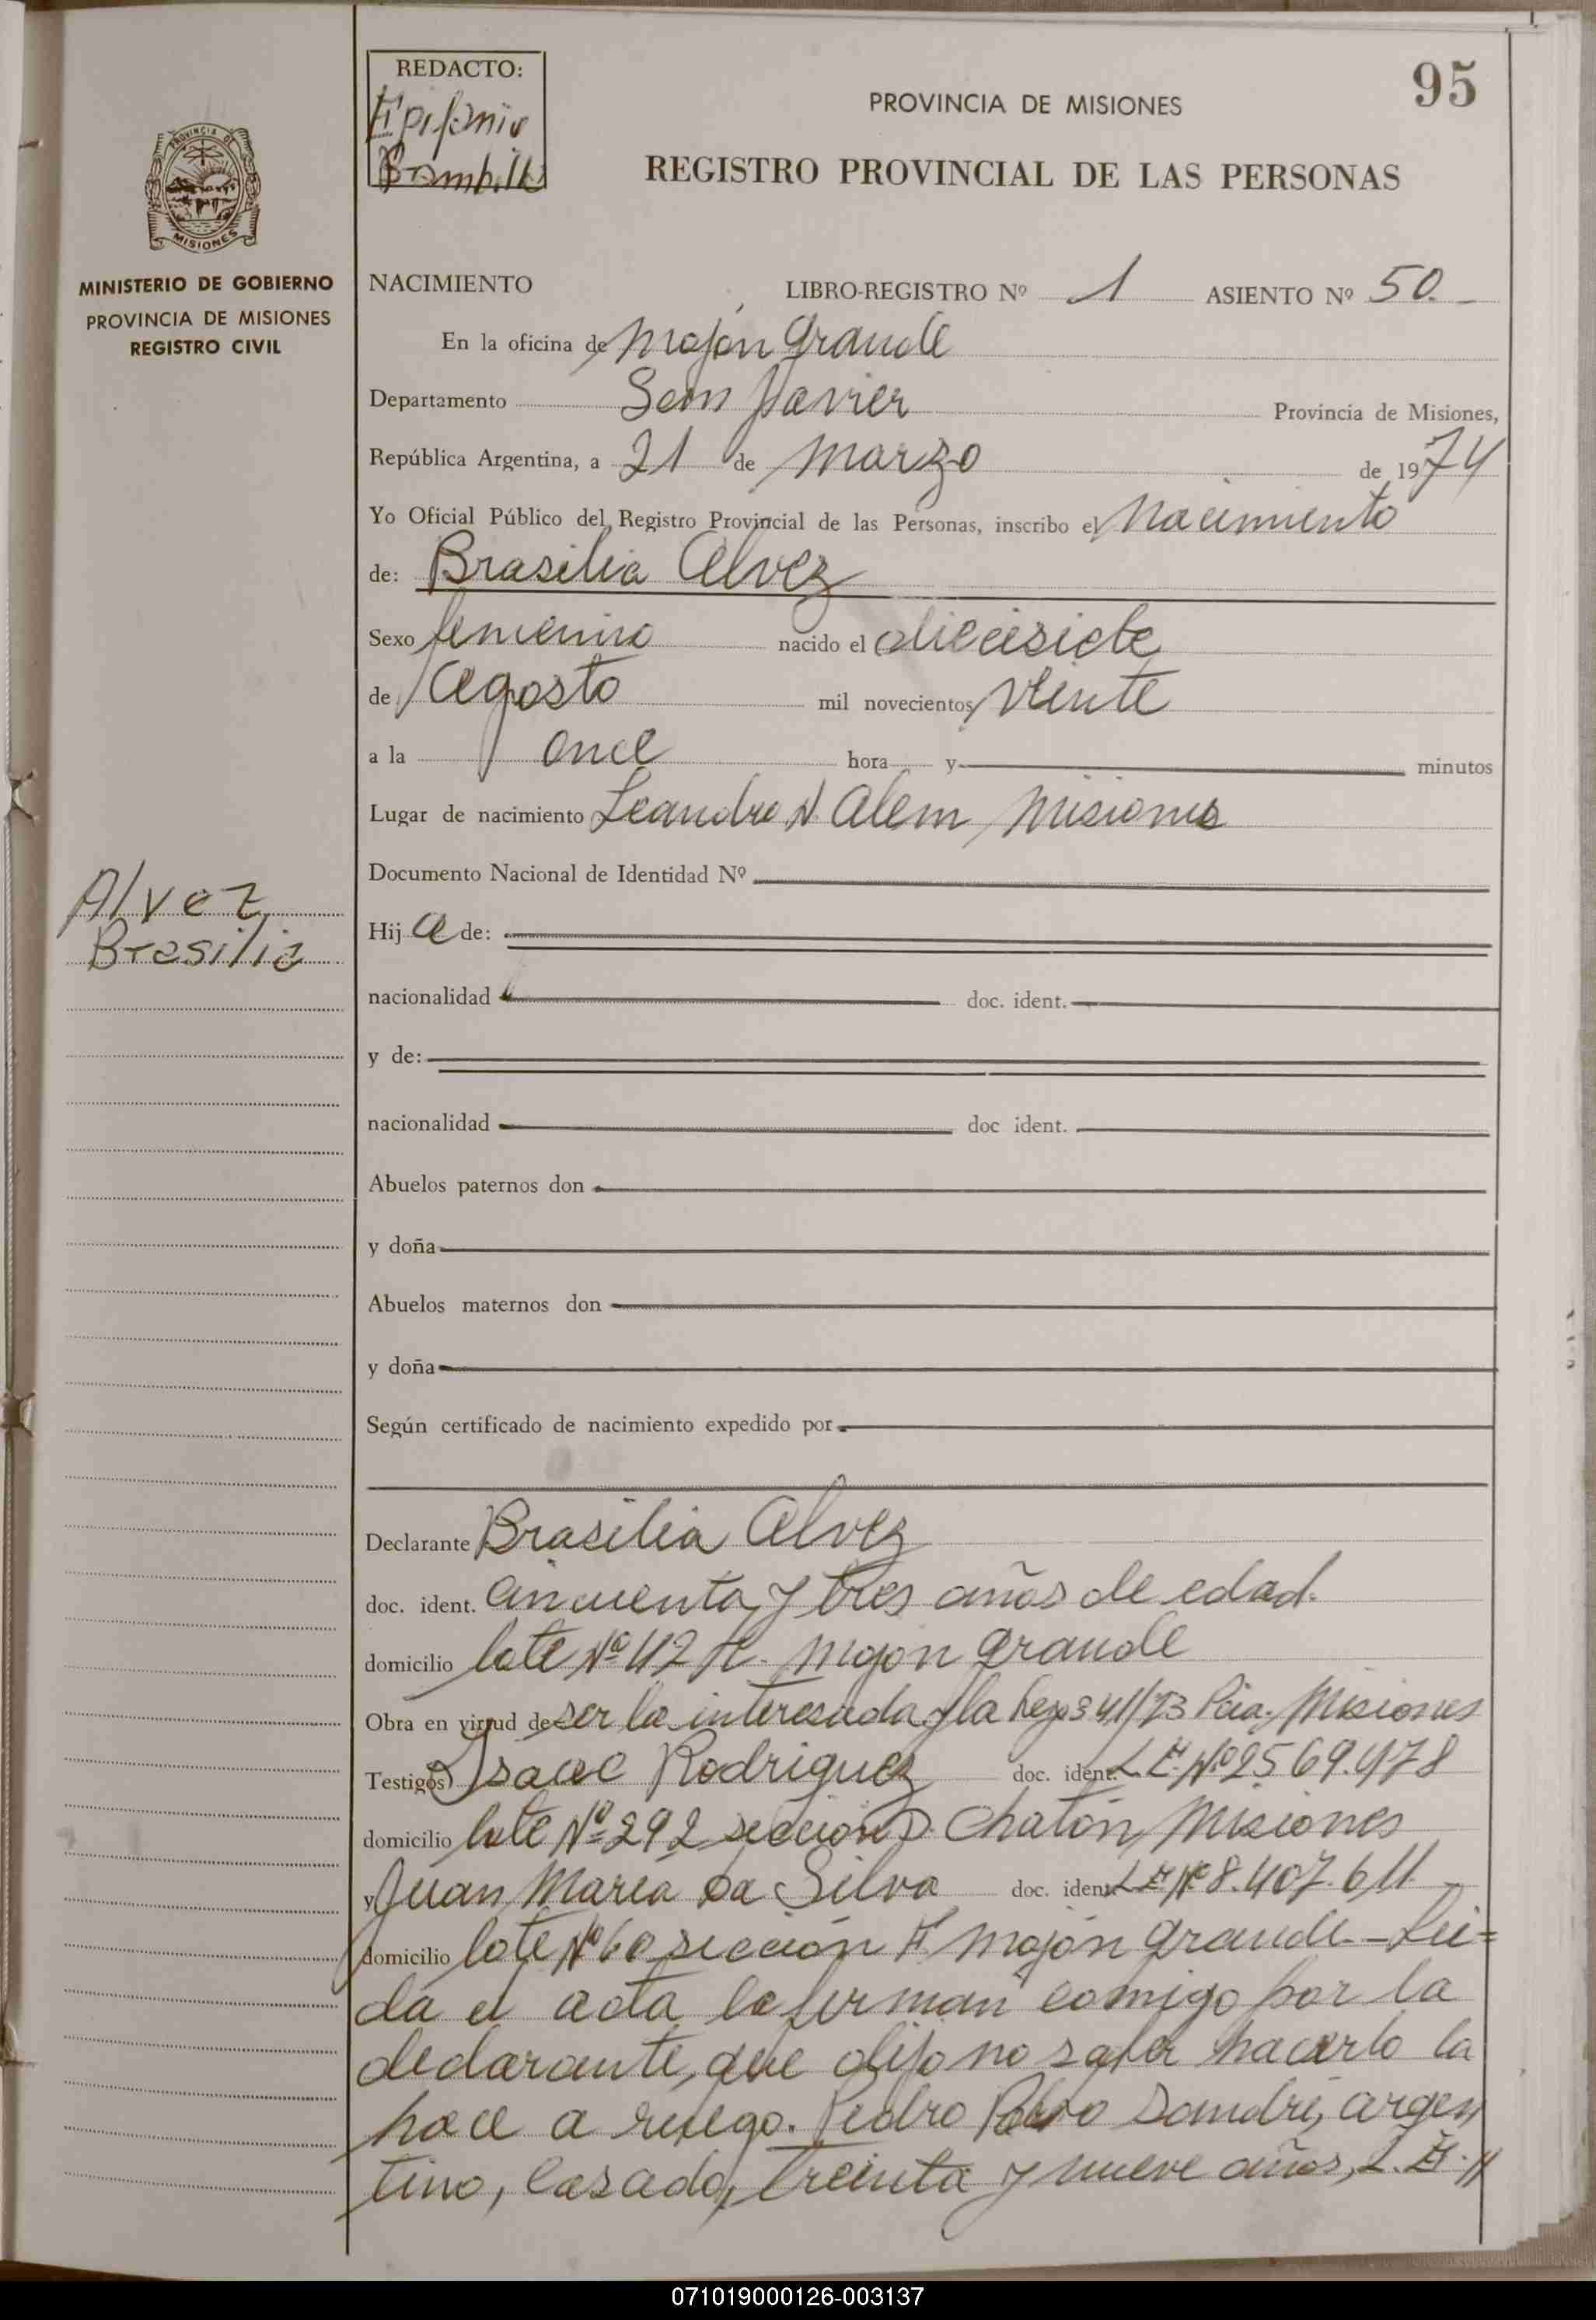 REDACTO:
Epifanio
95
PROVINCIA DE MISIONES
REGISTRO PROVINCIAL DE LAS PERSONAS
PROVINCIA DE
MISIONES
MINISTERIO DE GOBIERNO
PROVINCIA DE MISIONES
REGISTRO CIVIL
NACIMIENTO LIBRO-REGISTRO Nº 1 ASIENTO Nº 50.
En la oficina de Mojón Grande
Departamento San Javier Provincia de Misiones,
República Argentina, a 21 de Marzo de 1974
Yo Oficial Público del Registro Provincial de las Personas, inscribo el Nacimiento
de: Brasilia Alvez
Sexo femenino nacido el diecisiete
de Agosto mil novecientos veinte
a la once hora y minutos
Lugar de nacimiento Leandro N. Alem, Misiones
Documento Nacional de Identidad Nº
Alvez
Brasilia
Hij a de:
nacionalidad doc. ident.
y de:
nacionalidad doc ident.
Abuelos paternos don
y doña
Abuelos maternos don
y doña
Según certificado de nacimiento expedido por
Declarante Brasilia Alvez
doc. ident. cincuenta y tres años de edad.
domicilio lote Nº 112 Mojon Grande
Obra en virtud de ser la interesada y la Ley 341/73 Pcia. Misiones
Testigos Isaac Rodriguez doc. ident. L.E. Nº 2569.478
domicilio lote Nº 292 sección Chatón, Misiones
y Juan Maria Da Silva doc. ident. L.E. Nº 8.407.611
domicilio lote Nº 60 sección Mojón Grande.- Lei=
da el acta la firman comigo por la
declarante, que dijo no saber hacerlo la
hace a ruego. Pedro Pablo Sandri, argen
tino, casado, treinta y nueve años, L.E. N
071019000126-003137